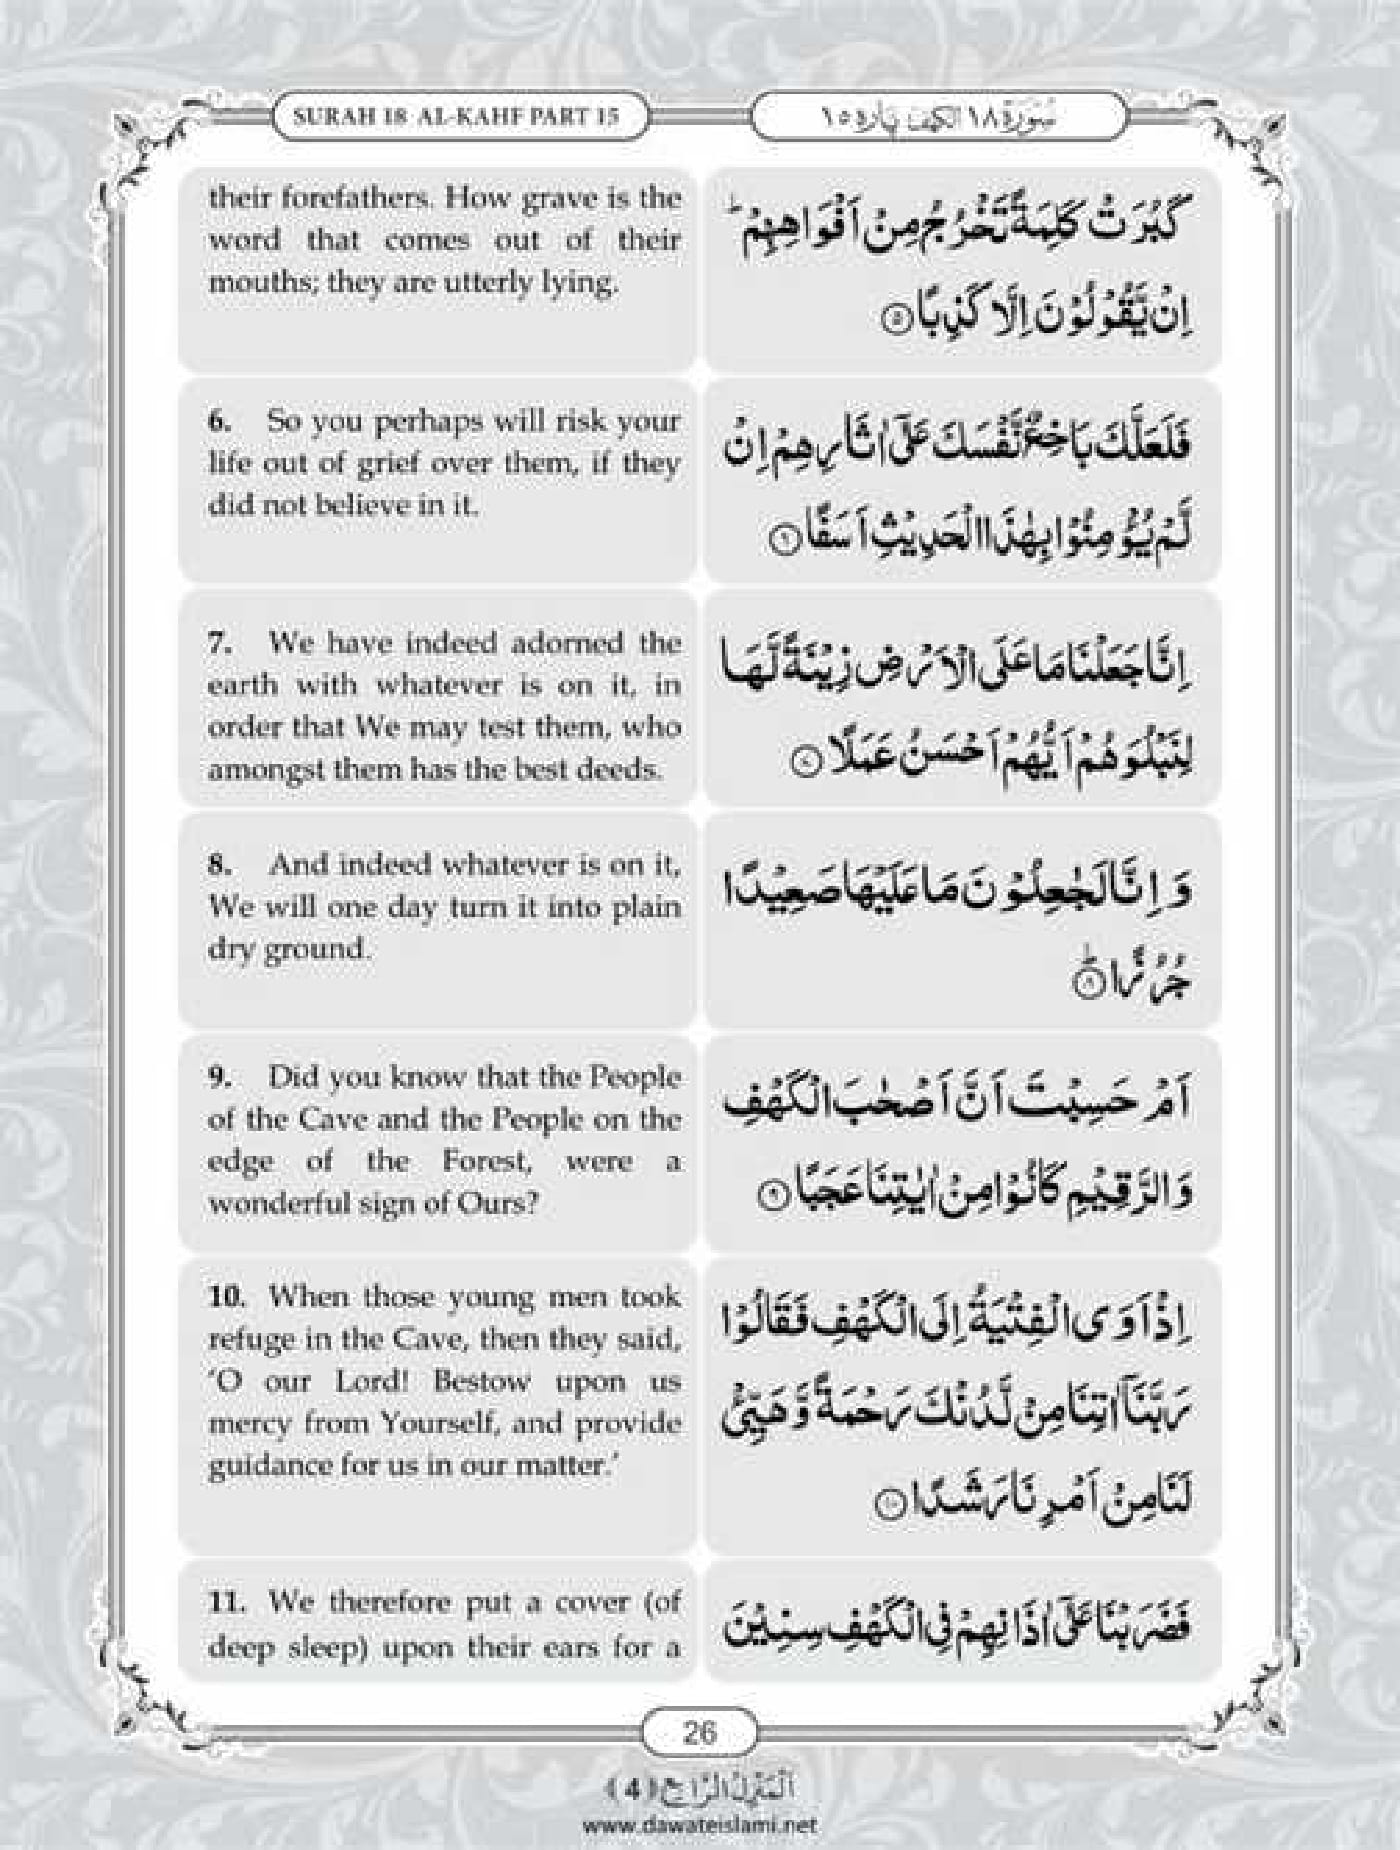 SURAH 18 AL-KAHF PART 15
سُوْرَة ١٨ الكهف پاره ١٥
their forefathers. How grave is the
word that comes out of their
mouths; they are utterly lying.
كَبُرَتْ كَلِمَةً تَخْرُجُ مِنْ اَفْوَاهِهِمْ ؕ
اِنْ يَّقُوْلُوْنَ اِلَّا كَذِبًا ﴿۵﴾
6. So you perhaps will risk your
life out of grief over them, if they
did not believe in it.
فَلَعَلَّكَ بَاخِعٌ نَّفْسَكَ عَلٰۤى اٰثَارِهِمْ اِنْ
لَّمْ يُؤْمِنُوْا بِهٰذَا الْحَدِيْثِ اَسَفًا ﴿۶﴾
7. We have indeed adorned the
earth with whatever is on it, in
order that We may test them, who
amongst them has the best deeds.
اِنَّا جَعَلْنَا مَا عَلَى الْاَرْضِ زِيْنَةً لَّهَا
لِنَبْلُوَهُمْ اَيُّهُمْ اَحْسَنُ عَمَلًا ﴿۷﴾
8. And indeed whatever is on it,
We will one day turn it into plain
dry ground.
وَ اِنَّا لَجٰعِلُوْنَ مَا عَلَيْهَا صَعِيْدًا
جُرُزًا ﴿۸﴾ؕ
9. Did you know that the People
of the Cave and the People on the
edge of the Forest, were a
wonderful sign of Ours?
اَمْ حَسِبْتَ اَنَّ اَصْحٰبَ الْكَهْفِ
وَ الرَّقِيْمِ كَانُوْا مِنْ اٰيٰتِنَا عَجَبًا ﴿۹﴾
10. When those young men took
refuge in the Cave, then they said,
‘O our Lord! Bestow upon us
mercy from Yourself, and provide
guidance for us in our matter.’
اِذْ اَوَى الْفِتْيَةُ اِلَى الْكَهْفِ فَقَالُوْا
رَبَّنَاۤ اٰتِنَا مِنْ لَّدُنْكَ رَحْمَةً وَّ هَيِّئْ
لَنَا مِنْ اَمْرِنَا رَشَدًا ﴿۱۰﴾
11. We therefore put a cover (of
deep sleep) upon their ears for a
فَضَرَبْنَا عَلٰۤى اٰذَانِهِمْ فِى الْكَهْفِ سِنِيْنَ
26
اَلْمَنْزِلُ الرَّابِع ﴿4﴾
www.dawateislami.net